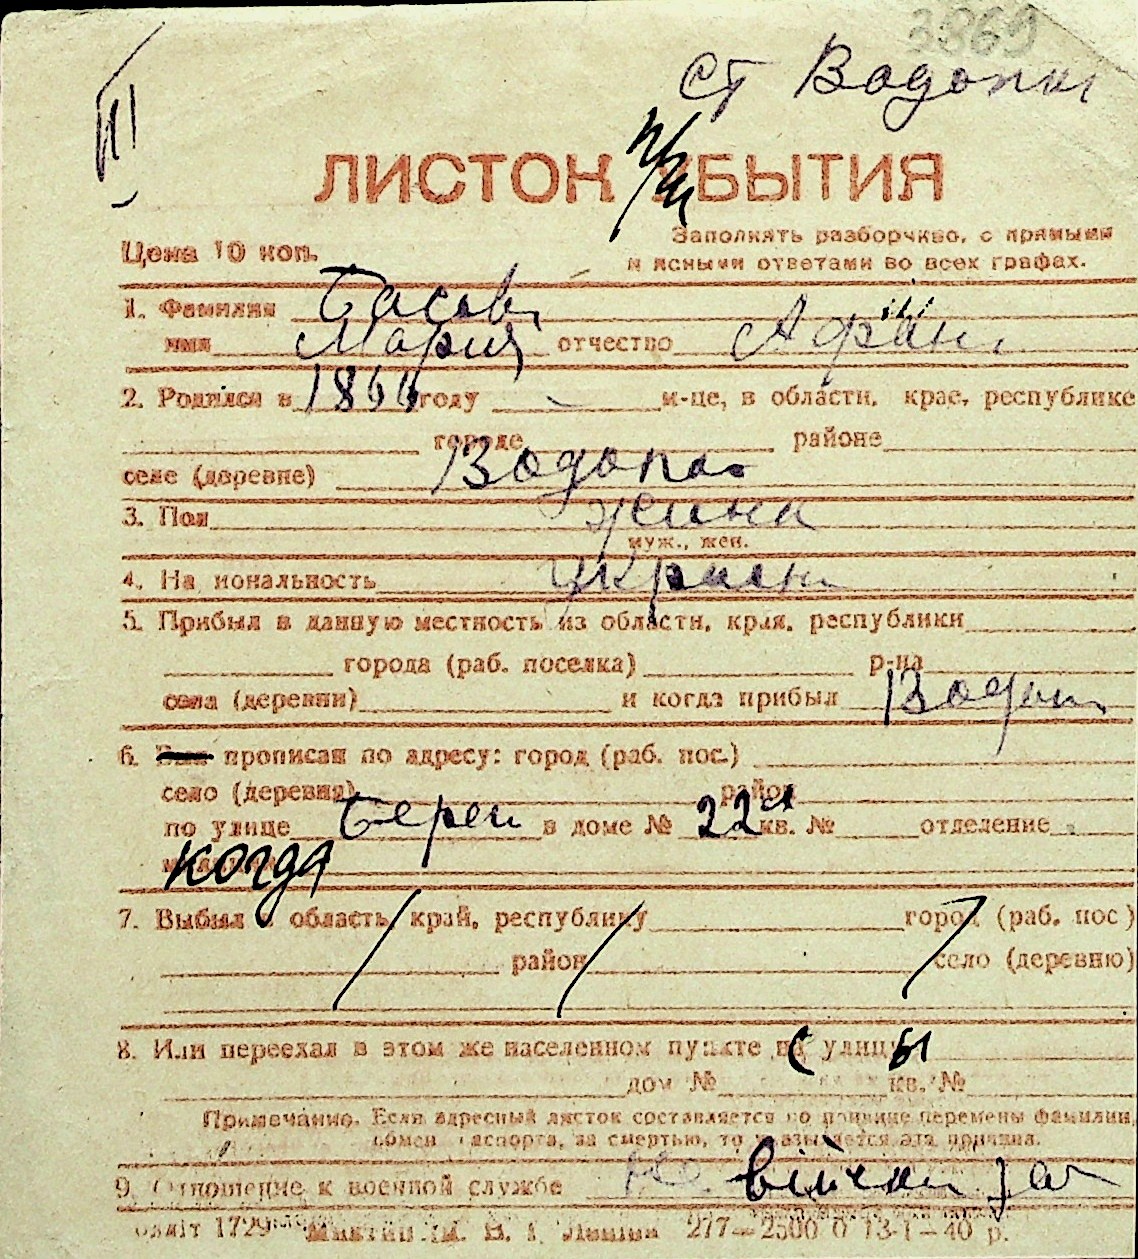 3869
ст Водопой
ЛИСТОК УБЫТИЯ
Цена 10 коп.
Заполнять разборчиво, с прямыми
и ясными ответами во всех графах.
1. Фамилия Басова
имя Мария отчество
2. Родился в году м-це, в области, крае, республике
городе районе
селе (деревне) Водопой
3. Пол
муж., жен.
4. Национальность украин
5. Прибыл в данную местность из области, края, республики
города (раб. поселка) р-на
села (деревни) и когда прибыл Водоп
6. прописан по адресу: город (раб. пос.)
село (деревня) район
по улице Берег в доме № 22а кв. № отделение
милиции когда
7. Выбыл в область, край, республику город (раб. пос)
район село (деревню)
8. Или переехал в этом же населенном пункте на улицу
дом № кв. №
Примечание. Если адресный листок составляется по причине перемены фамилии,
обмен паспорта, за смертью, то указывается эта причина.
9. Отношение к военной службе
1729 277—2500 0 13-I—40 р.